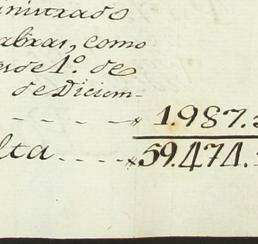 inistrado
abras, como
esde 1º. de
de Diciem-
1.987.
lta 59.474.